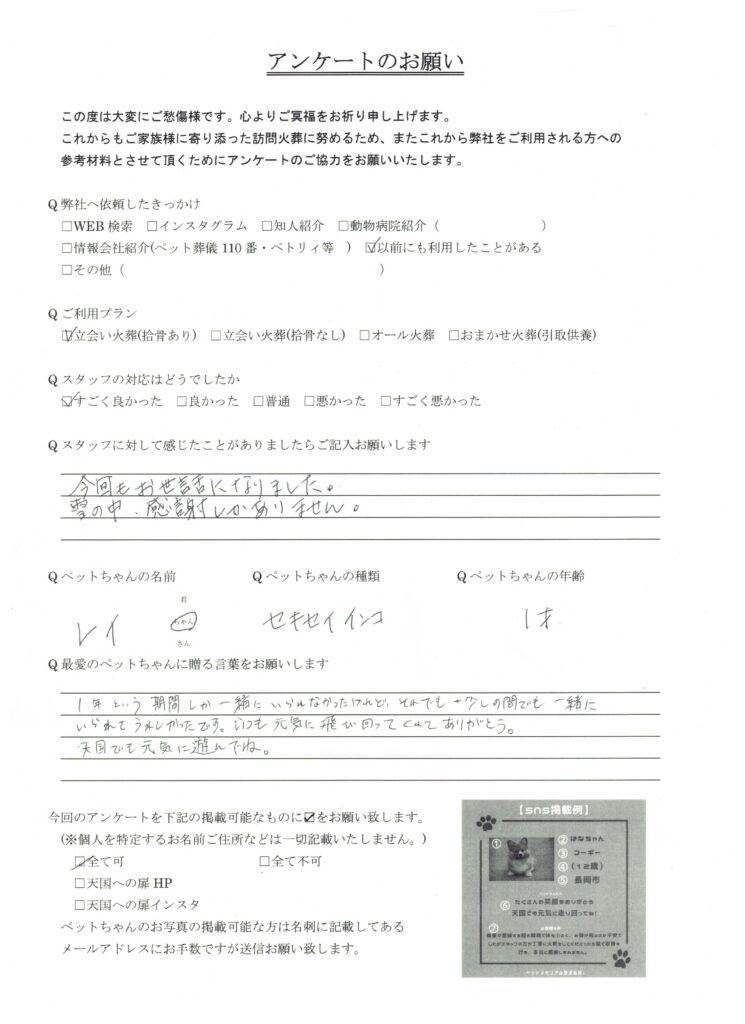 アンケートのお願い
この度は大変にご愁傷様です。心よりご冥福をお祈り申し上げます。
これからもご家族様に寄り添った訪問火葬に努めるため、またこれから弊社をご利用される方への
参考材料とさせて頂くためにアンケートのご協力をお願いいたします。
Q 弊社へ依頼したきっかけ
□WEB 検索 □インスタグラム □知人紹介 □動物病院紹介（ ）
□情報会社紹介(ペット葬儀 110 番・ペトリィ等 ) ☑以前にも利用したことがある
□その他（ ）
Q ご利用プラン
☑立会い火葬(拾骨あり) □立会い火葬(拾骨なし) □オール火葬 □おまかせ火葬(引取供養)
Q スタッフの対応はどうでしたか
☑すごく良かった □良かった □普通 □悪かった □すごく悪かった
Q スタッフに対して感じたことがありましたらご記入お願いします
今回もお世話になりました。
雪の中、感謝しかありません。
Q ペットちゃんの名前 Q ペットちゃんの種類 Q ペットちゃんの年齢
君
レイ ちゃん セキセイインコ 1才
さん
Q 最愛のペットちゃんに贈る言葉をお願いします
1年という期間しか一緒にいられなかったけれど、それでも少しの間でも一緒に
いられてうれしかったです。いつも元気に飛び回ってくれてありがとう。
天国でも元気に遊んでね。
今回のアンケートを下記の掲載可能なものに☑をお願い致します。
(※個人を特定するお名前ご住所などは一切記載いたしません。)
☑全て可 □全て不可
□天国への扉 HP
□天国への扉インスタ
ペットちゃんのお写真の掲載可能な方は名刺に記載してある
メールアドレスにお手数ですが送信お願い致します。
【sns掲載例】
① ② はなちゃん
③ コーギー
④ (12歳)
⑤ 長岡市
⑥ たくさんの笑顔をありがとう
天国でも元気に走り回ってね!
⑦